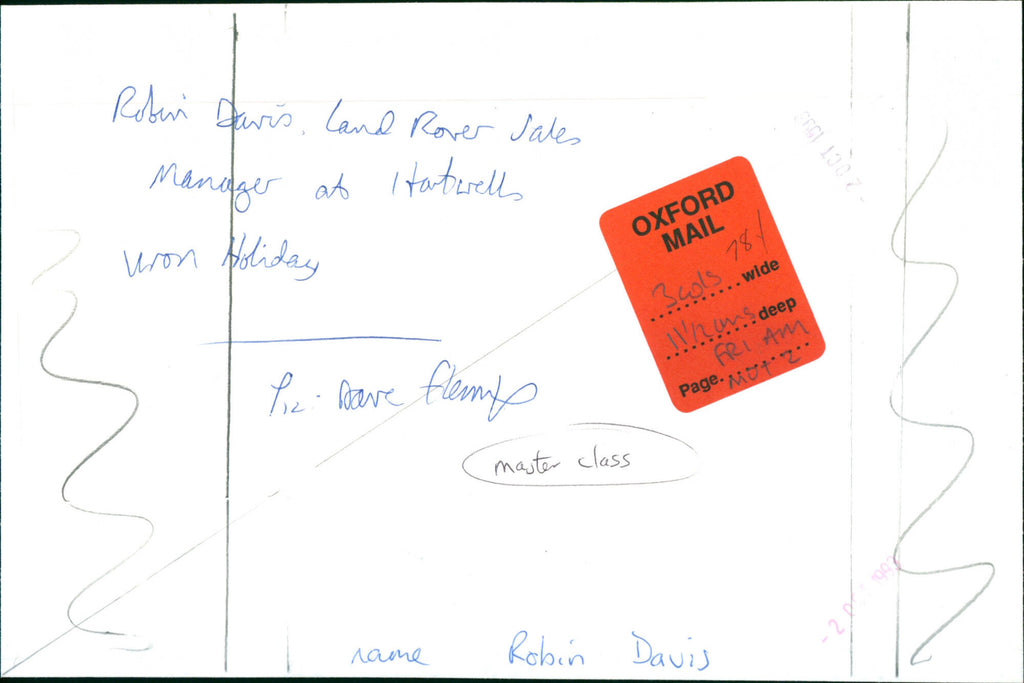 Robin Davis, Land Rover Sales
Manager at Hartwells
won Holiday
Pic: Dave Fleming
master class
OXFORD
MAIL
78%
3 cols wide
11 1/2 cms deep
FRI AM
Page. MOT 2
2 OCT 1993
- 2 OCT 1993
name Robin Davis